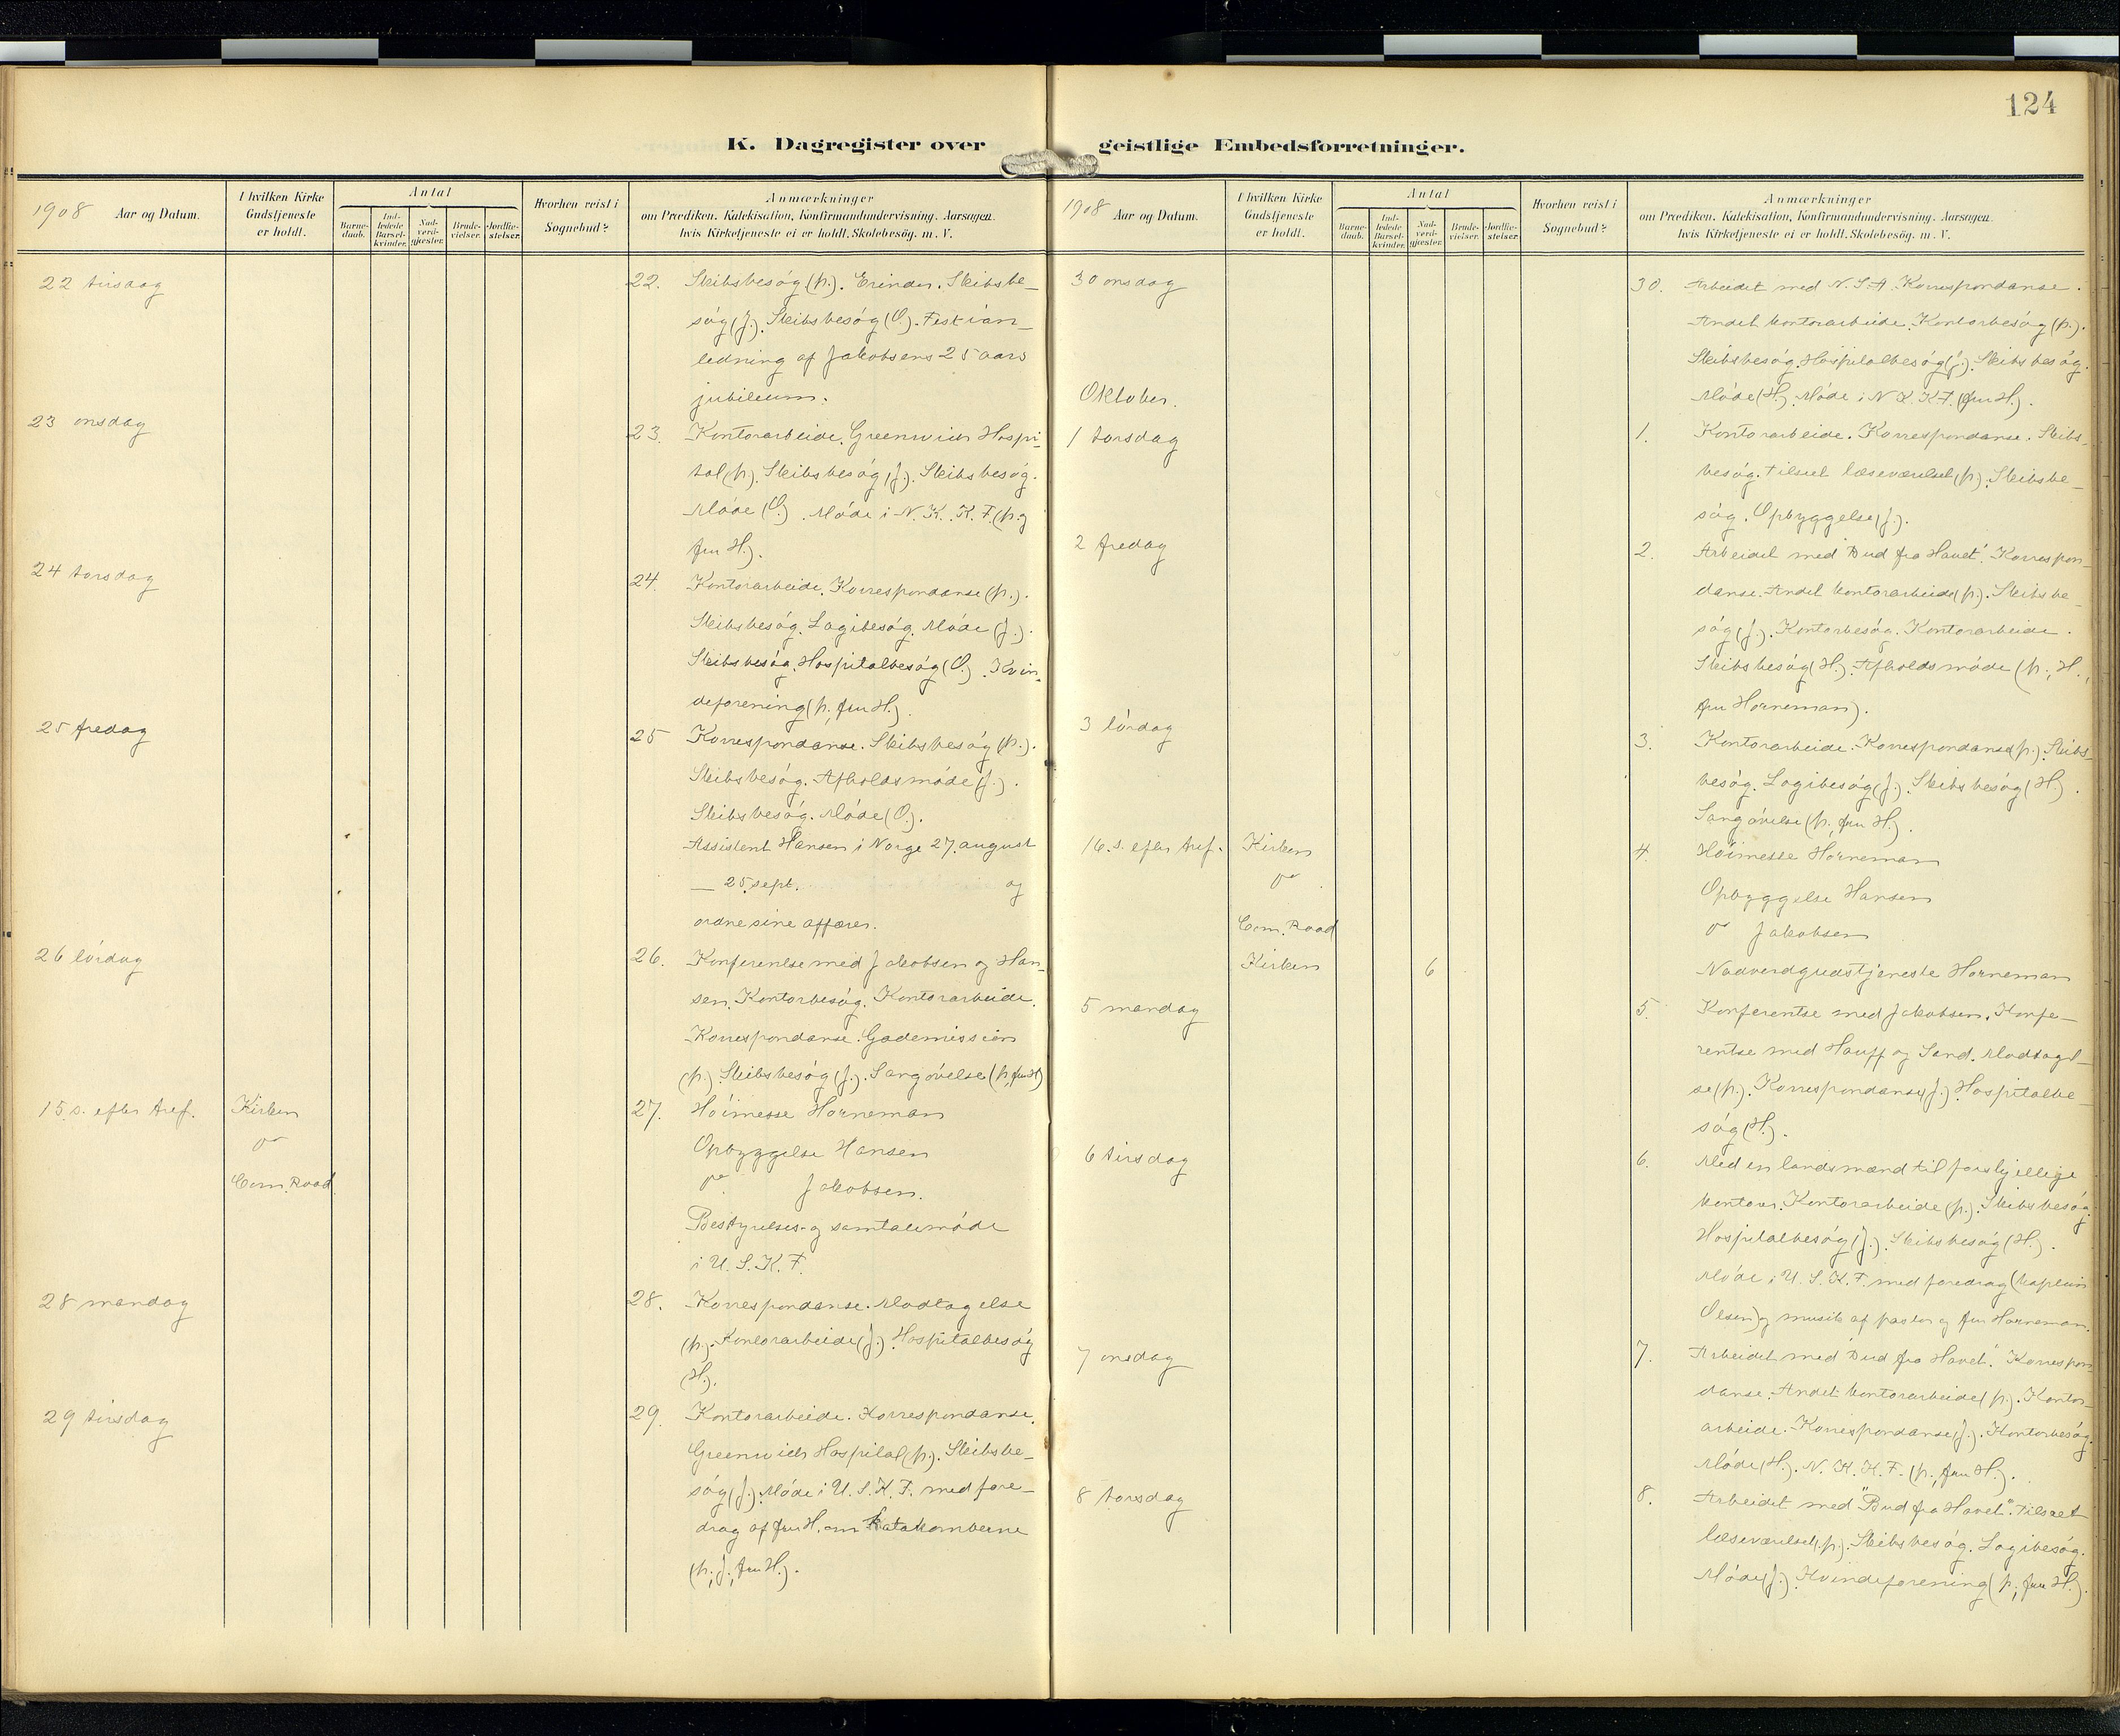 124
K. Dagregister over geistlige Embedsforretninger.
1908 Aar og Datum.
I hvilken Kirke
Gudstjeneste
er holdt.
Antal
Barne-
daab.
Ind-
ledede
Barsel-
kvinder.
Nad-
verd-
gjester.
Brude-
vielser.
Jordfæ-
stelser.
Hvorhen reist i
Sognebud?
Anmærkninger
om Prædiken, Katekisation, Konfirmandundervisning. Aarsagen,
hvis Kirketjeneste ei er holdt. Skolebesög. m. V.
22 tirsdag
22. Skibsbesóg (p.). Erinder. Skibsbe-
sóg (J.). Skibsbesóg (O.). Fest i an-
ledning af Jakobsens 25 aars
jubileum.
23 onsdag
23. Kontorarbeide. Greenwich Hospi-
tal (p.). Skibsbesóg (J.). Skibsbesóg.
Móde (O.). Móde i N. K. K. F. (p. og
fru H.).
24 torsdag
24. Kontorarbeide. Korrespondanse (p.).
Skibsbesóg. Logibesóg. Móde (J.).
Skibsbesóg. Hospitalbesóg (O.). Kvin-
deforening (p., fru H.).
25 fredag
25 Korrespondanse. Skibsbesóg (p.).
Skibsbesóg. Afholdsmóde (J.).
Skibsbesóg. Móde (O.).
Assistent Hansen i Norge 27. august
— 25. sept. og
ordne sine affærer.
26 lórdag
26. Konferentse med Jakobsen og Han-
sen. Kontorbesóg. Kontorarbeide.
Korrespondanse. Gademission
(p.). Skibsbesóg (J.). Sangóvelse (p., fru H.)
15 s. efter tref. Kirken
27. Hóimesse Horneman
Opbyggelse Hansen
Com. Road
Jakobsen.
Bestyrelses- og samtalemóde
i U. S. K. F.
28 mandag
28. Korrespondanse. Modtagelse
(p.). Kontorarbeide (J.). Hospitalbesóg
(H.).
29 tirsdag
29. Kontorarbeide. Korrespondanse.
Greenwich Hospital (p.). Skibsbe-
sóg (J.). Móde i U. S. K. F. med fore-
drag af fru H. om katakomberne
(p., J., fru H.).
1908 Aar og Datum.
I hvilken Kirke
Gudstjeneste
er holdt.
Antal
Barne-
daab.
Ind-
ledede
Barsel-
kvinder.
Nad-
verd-
gjester.
Brude-
vielser.
Jordfæ-
stelser.
Hvorhen reist i
Sognebud?
Anmærkninger
om Prædiken, Katekisation, Konfirmandundervisning. Aarsagen,
hvis Kirketjeneste ei er holdt. Skolebesög. m. V.
30 onsdag
30. Arbeidet med N. S. A. Korrespondanse.
Andet kontorarbeide. Kontorbesóg (p.).
Skibsbesóg. Hospitalbesóg (J.). Skibsbesóg.
Móde (H.). Móde i N. K. K. F. (fru H.).
Oktober.
1 torsdag
1. Kontorarbeide. Korrespondanse. Skibs-
besóg. Tilseet læseværelset (p.). Skibsbe-
sóg. Opbyggelse (J.).
2 fredag
2. Arbeidet med "Bud fra Havet". Korrespon-
danse. Andet kontorarbeide (p.). Skibsbe-
sóg (J.). Kontorbesóg. Kontorarbeide.
Skibsbesóg (H.). Afholdsmóde (p., H.,
fru Horneman).
3 lórdag
3. Kontorarbeide. Korrespondanse (p.). Skibs-
besóg. Logibesóg (J.). Skibsbesóg (H.).
Sangóvelse (p., fru H.).
16. s. efter tref. Kirken
4. Hóimesse Horneman
Opbyggelse Hansen
Com. Road
Jakobsen
Kirken 6 Nadverdgudstjeneste Horneman
5 mandag
5. Konferentse med Jakobsen. Konfe-
rentse med Hauff og Sand. Modtagel-
se (p.). Korrespondanse (J.). Hospitalbe-
sóg (H.).
6 tirsdag
6. Med en landsmænd til forskjellige
kontorer. Kontorarbeide (p.). Skibsbesóg.
Hospitalbesóg (J.). Skibsbesóg (H.).
Móde i U. S. K. F. med foredrag (kaptein
Olsen) og musik af pastor og fru Horneman.
7 onsdag
7. Arbeidet med "Bud fra Havet". Korrespon-
danse. Andet kontorarbeide (p.). Kontor-
arbeide. Korrespondanse (J.). Kontorbesóg.
Móde (H.). N. K. K. F. (p., fru H.).
8 torsdag
8. Arbeidet med "Bud fra Havet". Tilseet
læseværelset (p.). Skibsbesóg. Logibesóg.
Móde (J.). Kvindeforening (p., fru H.).